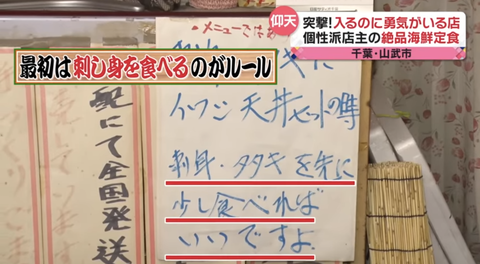 仰天
突撃!入るのに勇気がいる店
個性派店主の絶品海鮮定食
千葉・山武市
最初は刺し身を食べるのがルール
メニューでは
イワシ天丼セットの時
刺身・タタキを先に
少し食べれば
いいですよ
配にて全国発送